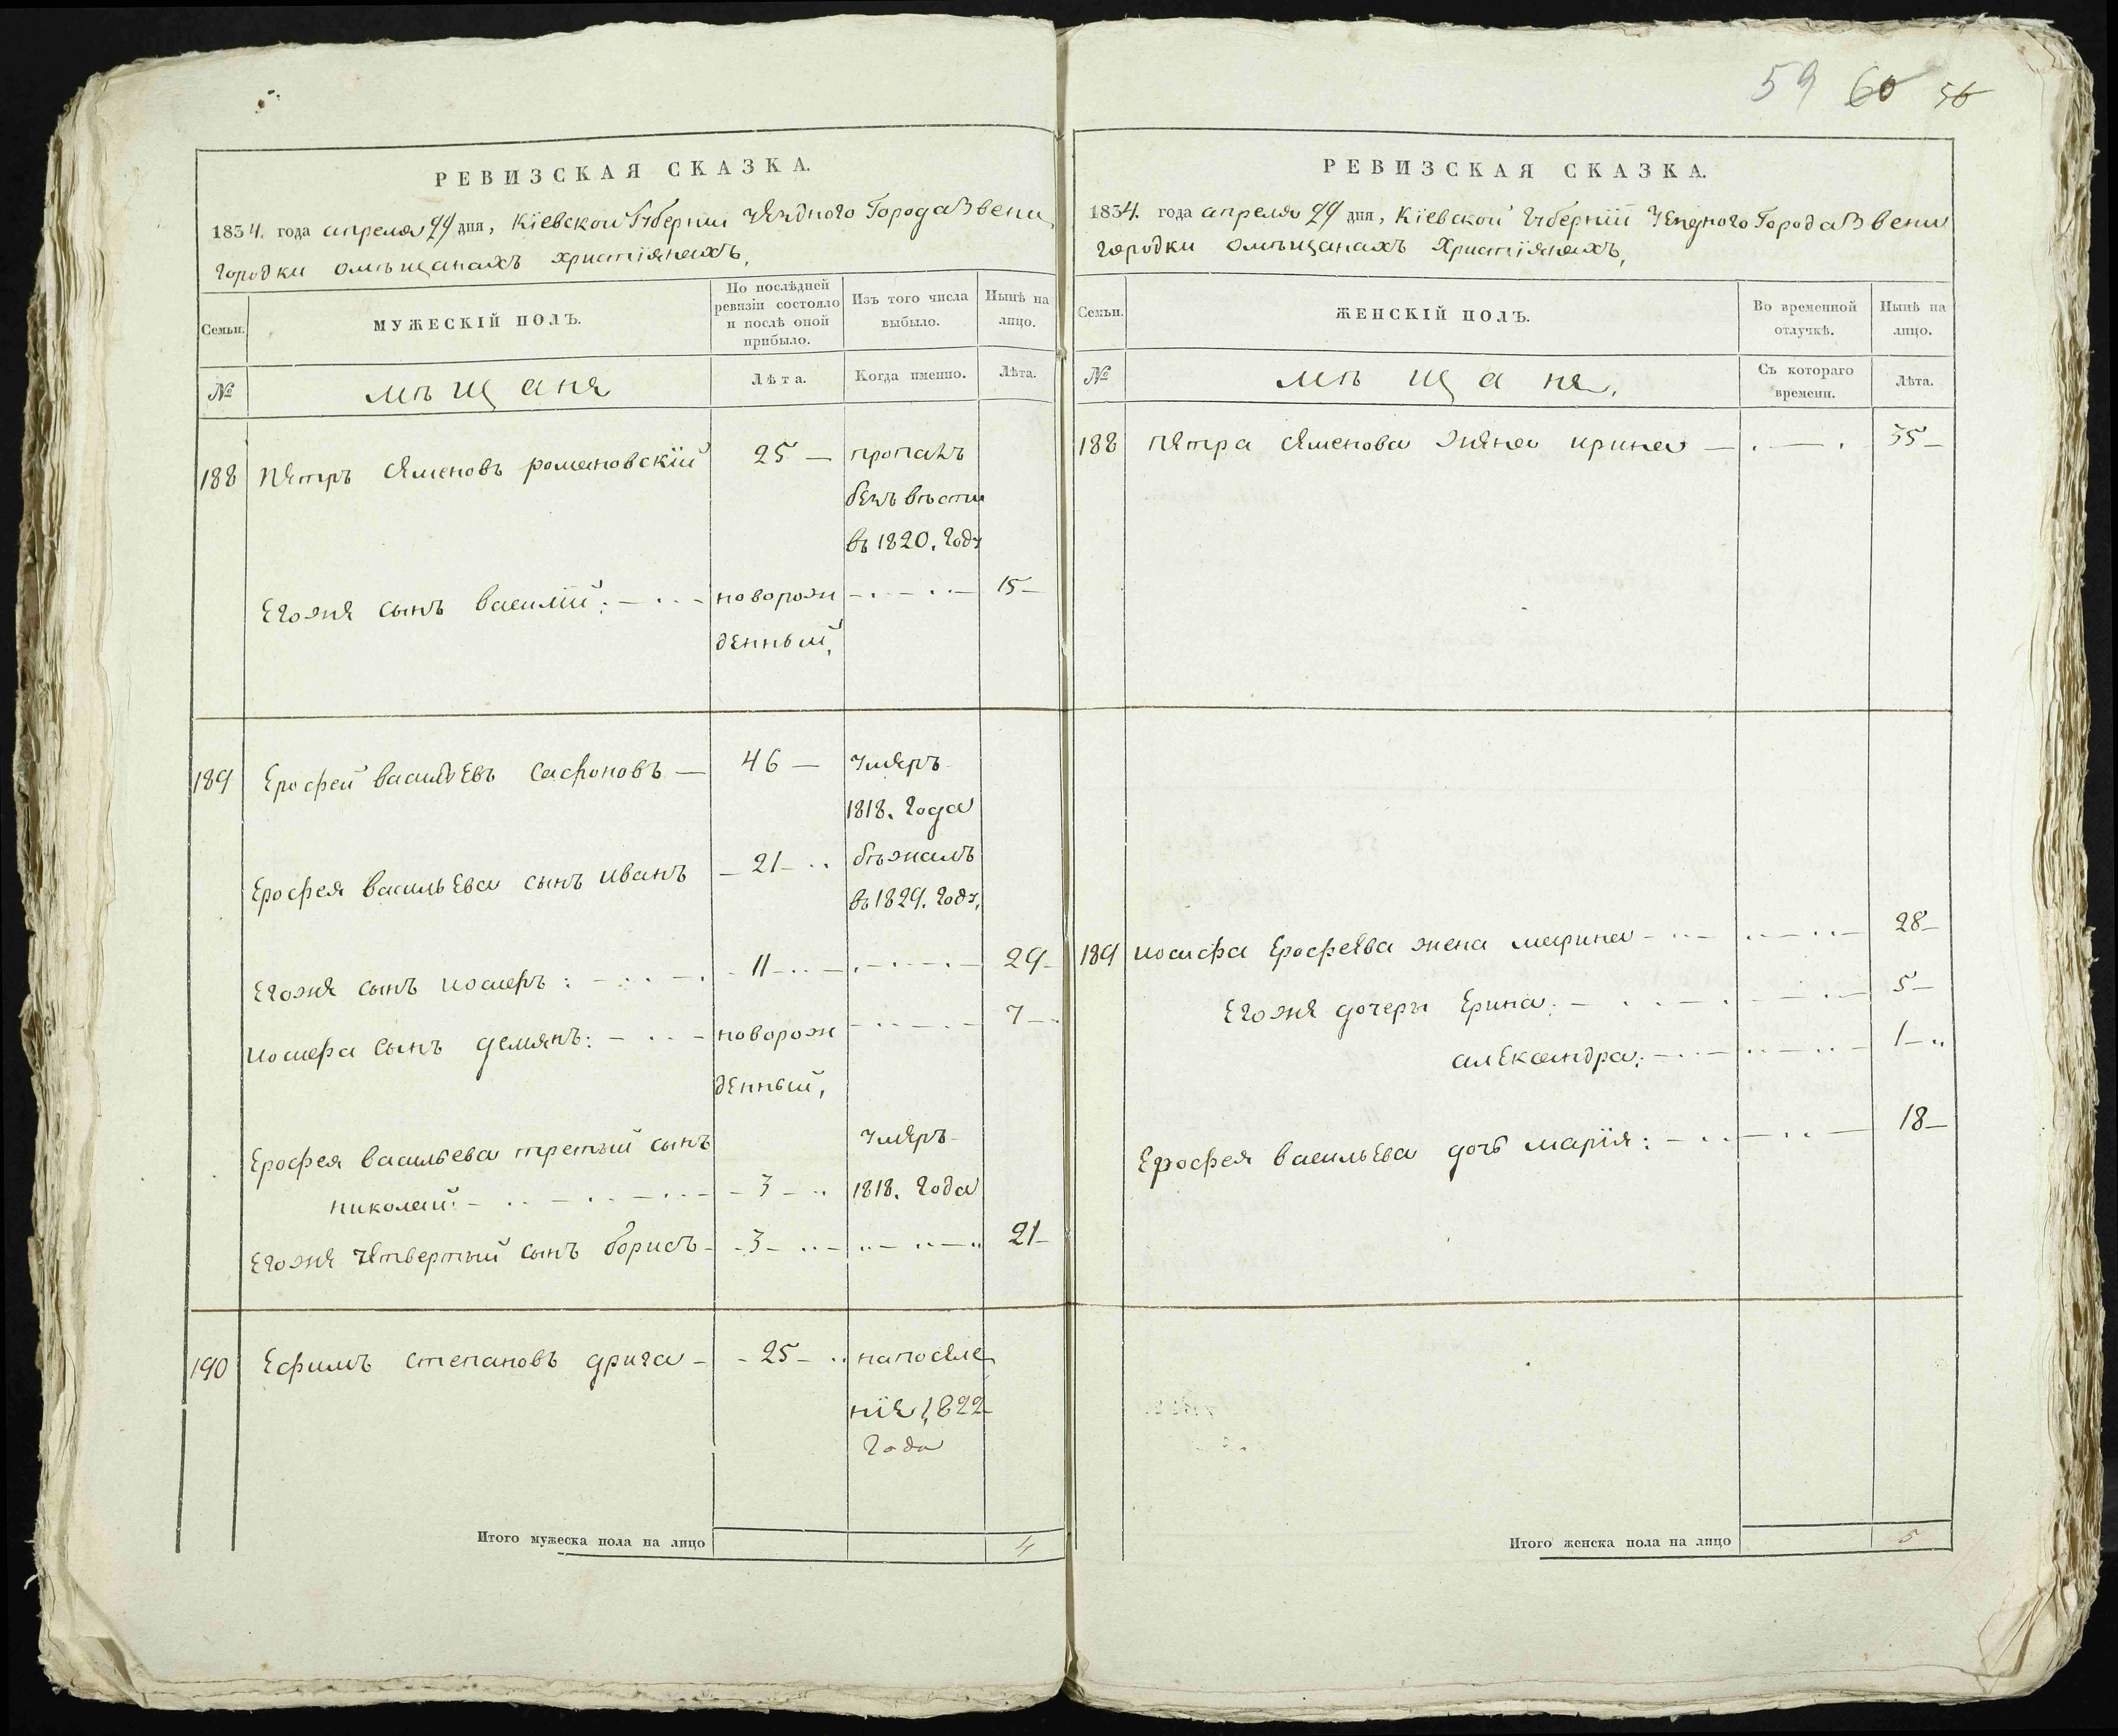 59 60 56
РЕВИЗСКАЯ СКАЗКА.
1834. года апреля 29 дня, Кіевской Губерніи Уезднаго Города Звени
городки омѣщанахъ христіянахъ,
Семьи.
МУЖЕСКІЙ ПОЛЪ.
По послѣдней
ревизіи состояло
и послѣ оной
прибыло.
Изъ того числа
выбыло.
Нынѣ на
лицо.
№
мѣщаня
Лѣта.
Когда именно.
Лѣта.
188 Петръ Семеновъ романовскій 25 — пропалъ
безъ вѣсти
въ 1820. Году
Егоже сынъ василій: новорож 15—
денный,
189 Ерофей васильевъ сафоновъ — 46 — умеръ
1818. Года
Ерофея васильева сынъ иванъ — 21 — бѣжалъ
въ 1829. Году,
Егоже сынъ иосифъ: 11 29—
иосифа сынъ демянъ: новорож 7—
денный,
Ерофея васильева третый сынъ умеръ
николай: — 3 — 1818. Года
Егоже четвертый сынъ борисъ — 3 — 21—
190 Ефимъ степановъ дрига — 25 — напоселе
ніе 1822
Года
Итого мужеска пола на лицо 4
РЕВИЗСКАЯ СКАЗКА.
1834. года апреля 29 дня, Кіевской Губерніи Уезднаго Города Звени
городки омѣщанахъ Христіянахъ,
Семьи.
ЖЕНСКІЙ ПОЛЪ.
Во временной
отлучкѣ.
Нынѣ на
лицо.
№
мѣщаня,
Съ котораго
времени.
Лѣта.
188 петра семенова жена ирина — 35—
189 иосифа Ерофеева жена марина 28—
Егоже дочеры Ерина: 5—
александра: 1—
Ерофея васильева дочь марія: 18—
Итого женска пола на лицо 5